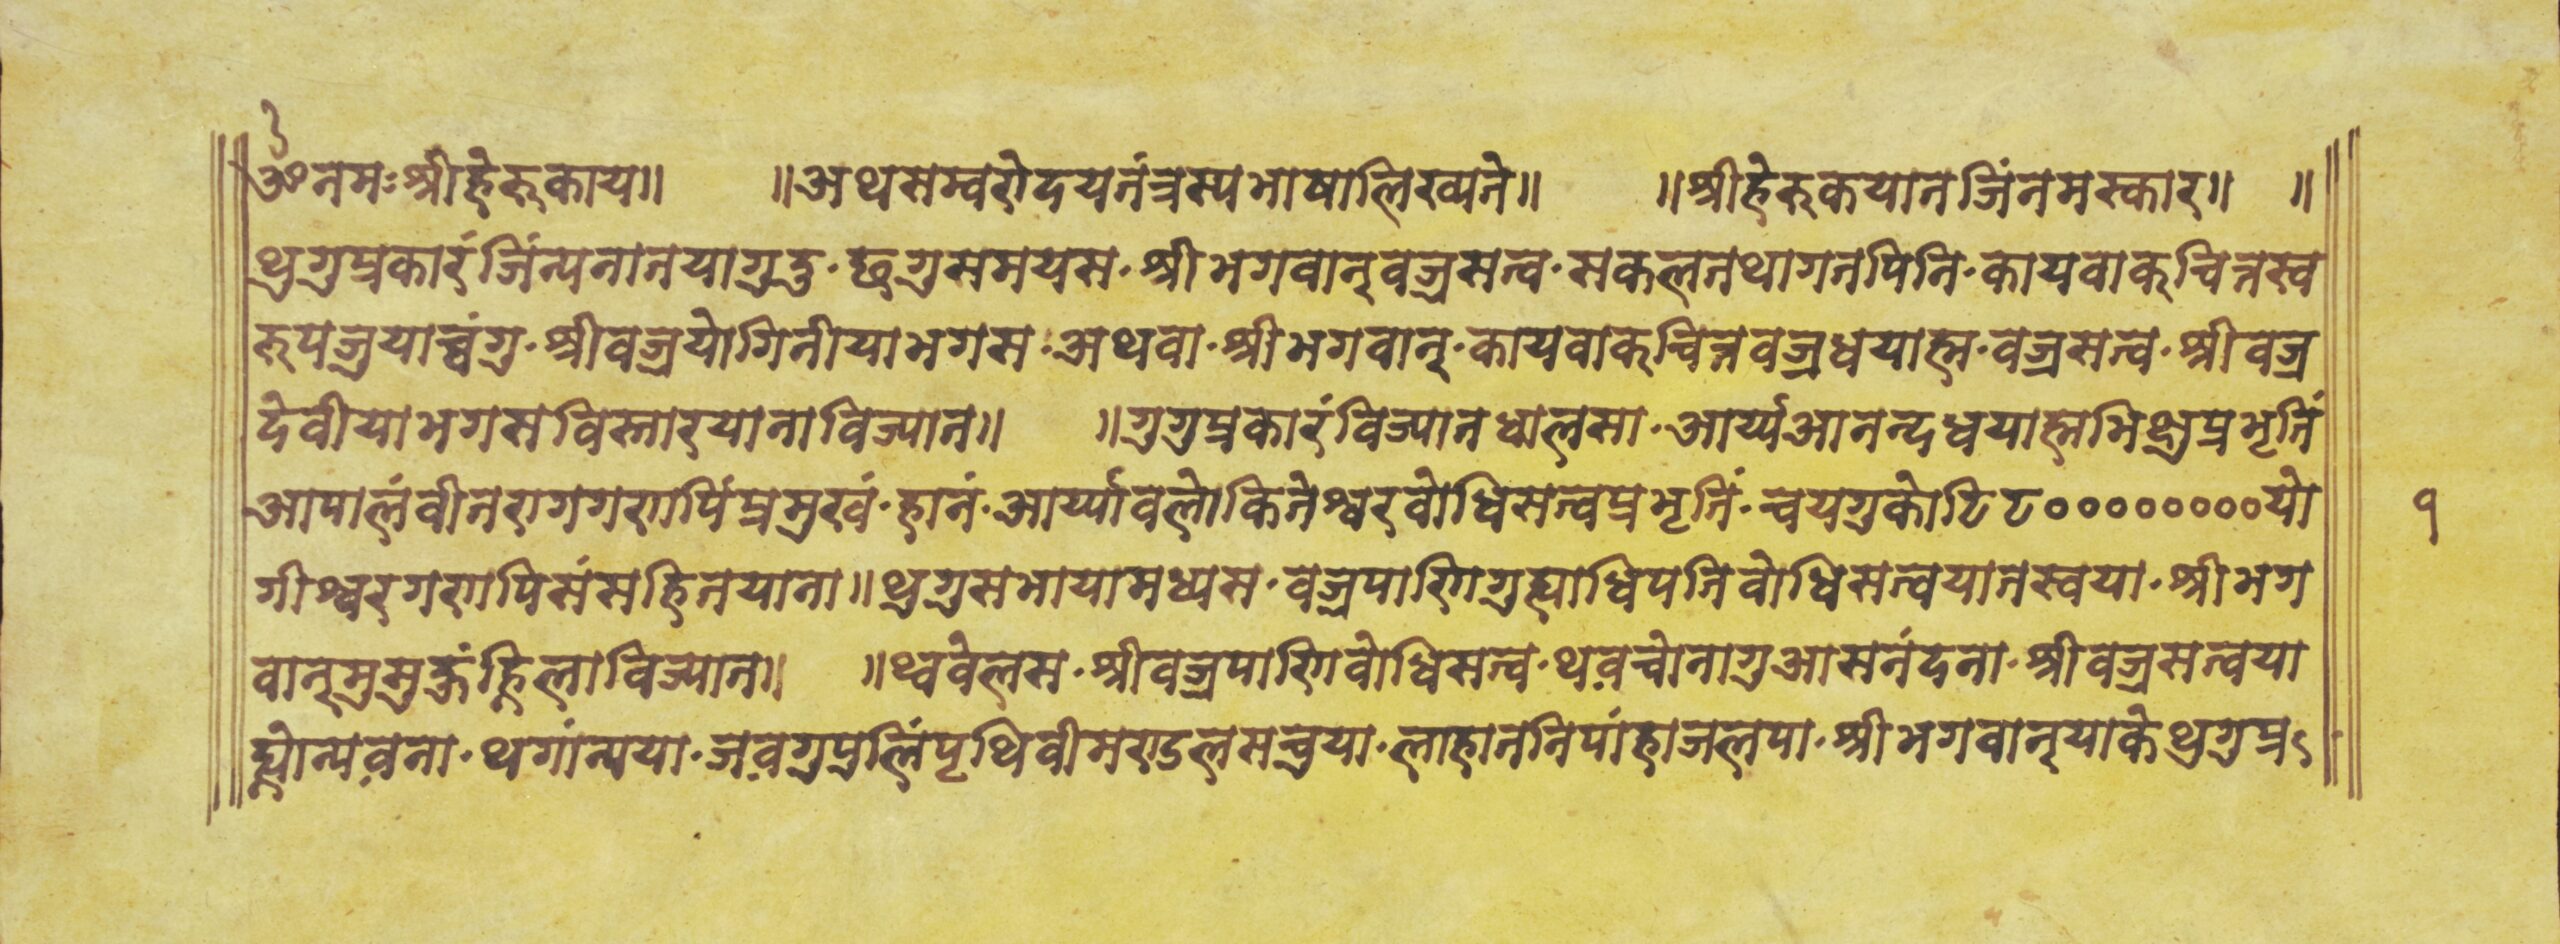 ॐ नमः श्रीहेरुकाय॥ ॥अथ सम्वरोदयतंत्रस्य भाषा लिख्यते॥ ॥श्रीहेरुकयात जिं नमस्कार॥ ॥
थुगु प्रकारं जिं न्यना तयागु दु · छगु समयस · श्रीभगवान् वज्रसत्व · सकल तथागतपिनि · कायवाक्चित्तस्व
रूप जुया च्वंगु · श्रीवज्रयोगिनीया भगस · अथवा · श्रीभगवान् · कायवाक्चित्तवज्र धयाह्म · वज्रसत्व · श्रीवज्र
देवीया भगस विस्तार याना विज्यात॥ ॥गुगु प्रकारं विज्यात धालसा · आर्य्यआनन्द धयाह्म भिक्षु प्रभृतिं
आपालं वीतरागगणपिं प्रमुखं · हानं · आर्य्यावलोकितेश्वर वोधिसत्व प्रभृतिं · च्वयगु कोटि ८००००००००यो
गीश्वरगणपिसं सहित याना॥ थुगु सभाया मध्यस · वज्रपाणि गुह्याधिपति वोधिसत्वयात स्वया · श्रीभग
वान् मुमुक्तं ह्निला विज्यात॥ ॥थ्व वेलस · श्रीवज्रपाणि वोधिसत्व · थव़ च्वोनागु आसनं दना · श्रीवज्रसत्वया
ह्न्योन्य व़ना · थ गां न्यया · जव़गु पुलिं पृथिवीमण्डल स चुया · लाहात निपां ह्राजलपा · श्रीभगवान्‌याके थुगु प्र
१